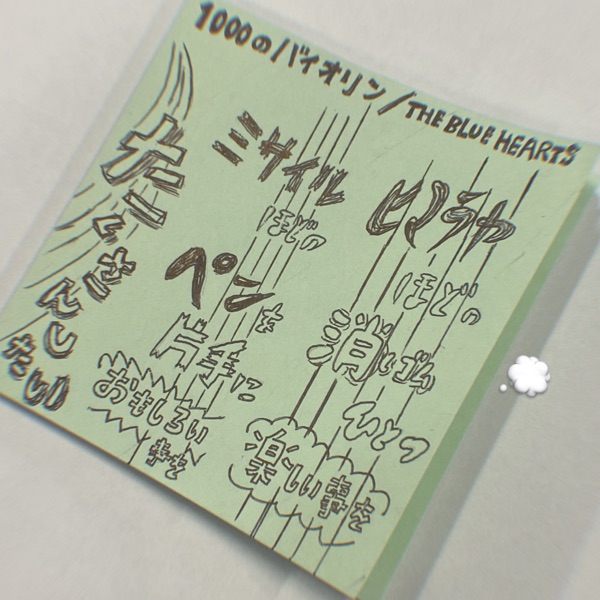 1000のバイオリン/THE BLUE HEARTS
ヒマラヤ
ほどの
消しゴム
ひとつ
楽しい事を
ミサイル
ほどの
ペンを
片手に
おもしろい
事を
たくさんしたい